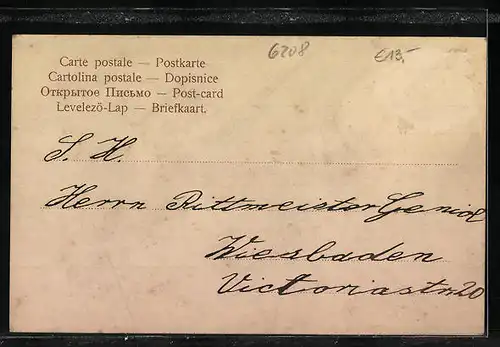 6208
€13,-
Carte postale — Postkarte
Cartolina postale — Dopisnice
Открытое Письмо — Post-card
Levelező-Lap — Briefkaart.
S. H.
Herrn Rittmeister Geniol
Wiesbaden
Victoriastr. 20